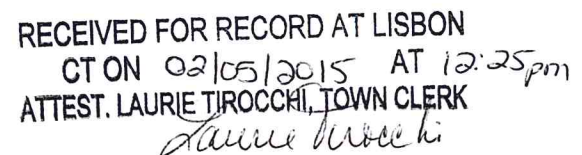 RECEIVED FOR RECORD AT LISBON
CT ON 02/05/2015 AT 12:25pm
ATTEST. LAURIE TIROCCHI, TOWN CLERK
Laurie Tirocchi